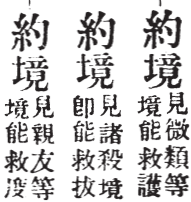 約境見微類等
境能救護
約境見諸殺境
卽能救拔
約境見親友等
境能救沒